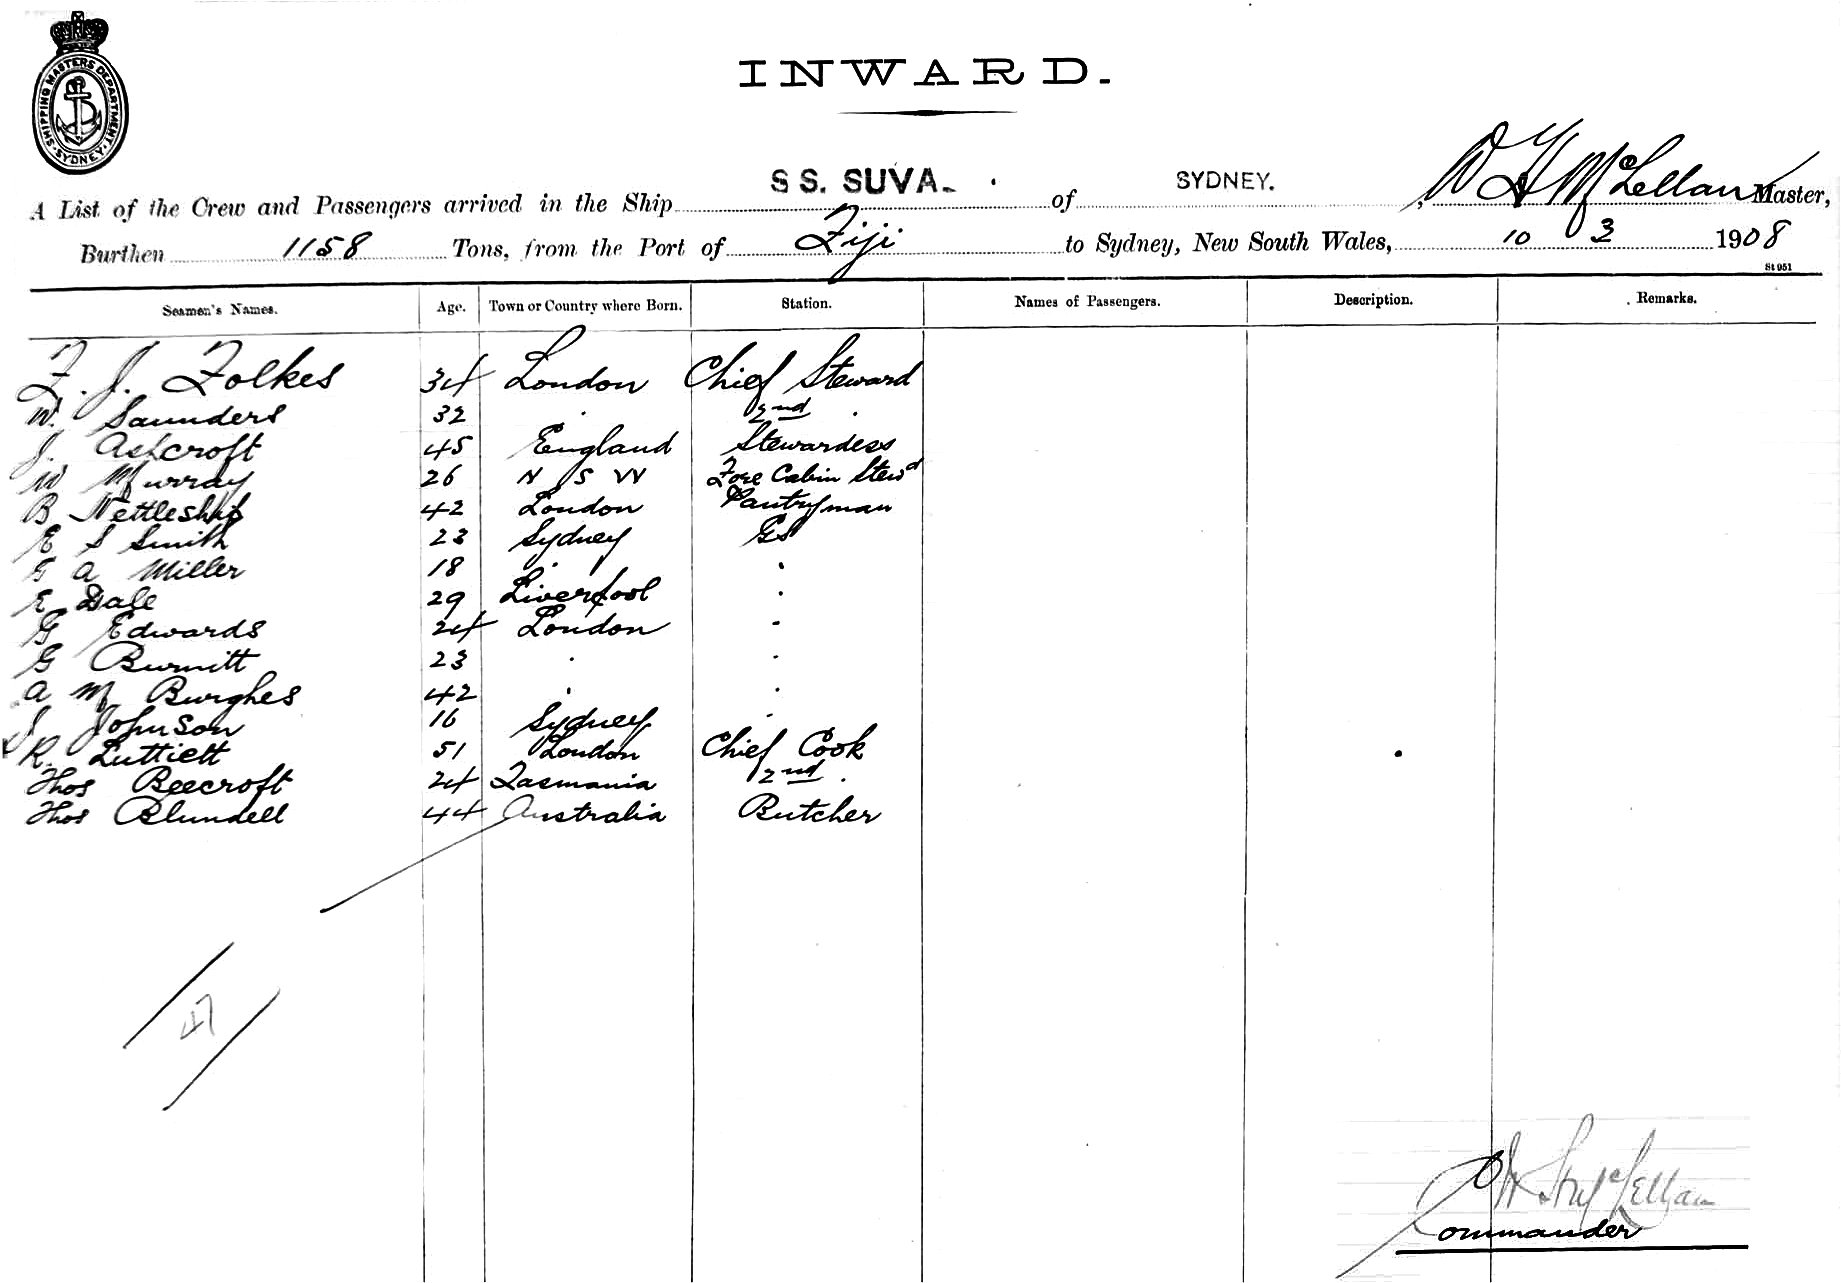 SHIPPING MASTERS DEPARTMENT
SYDNEY
INWARD.
A List of the Crew and Passengers arrived in the Ship SS. SUVA. of SYDNEY. , W H McLellan Master,
Burthen 1158 Tons, from the Port of Fiji to Sydney, New South Wales, 10 3 1908
St 951
Seamen's Names. Age. Town or Country where Born. Station. Names of Passengers. Description. Remarks.
F. J. Folkes 34 London Chief Steward
W. Saunders 32 " 2nd "
J. Ashcroft 45 England Stewardess
W Murray 26 N S W Fore Cabin Stewd
B Nettleship 42 London Pantryman
E S Smith 23 Sydney GS
G A Miller 18 " "
E Dale 29 Liverpool "
G Edwards 24 London "
G Burnitt 23 " "
A M Burghes 42 " "
J Johnson 16 Sydney "
R. Luttiett 51 London Chief Cook
Thos Beecroft 24 Tasmania 2nd "
Thos Blundell 44 Australia Butcher
47
McLellan
Commander